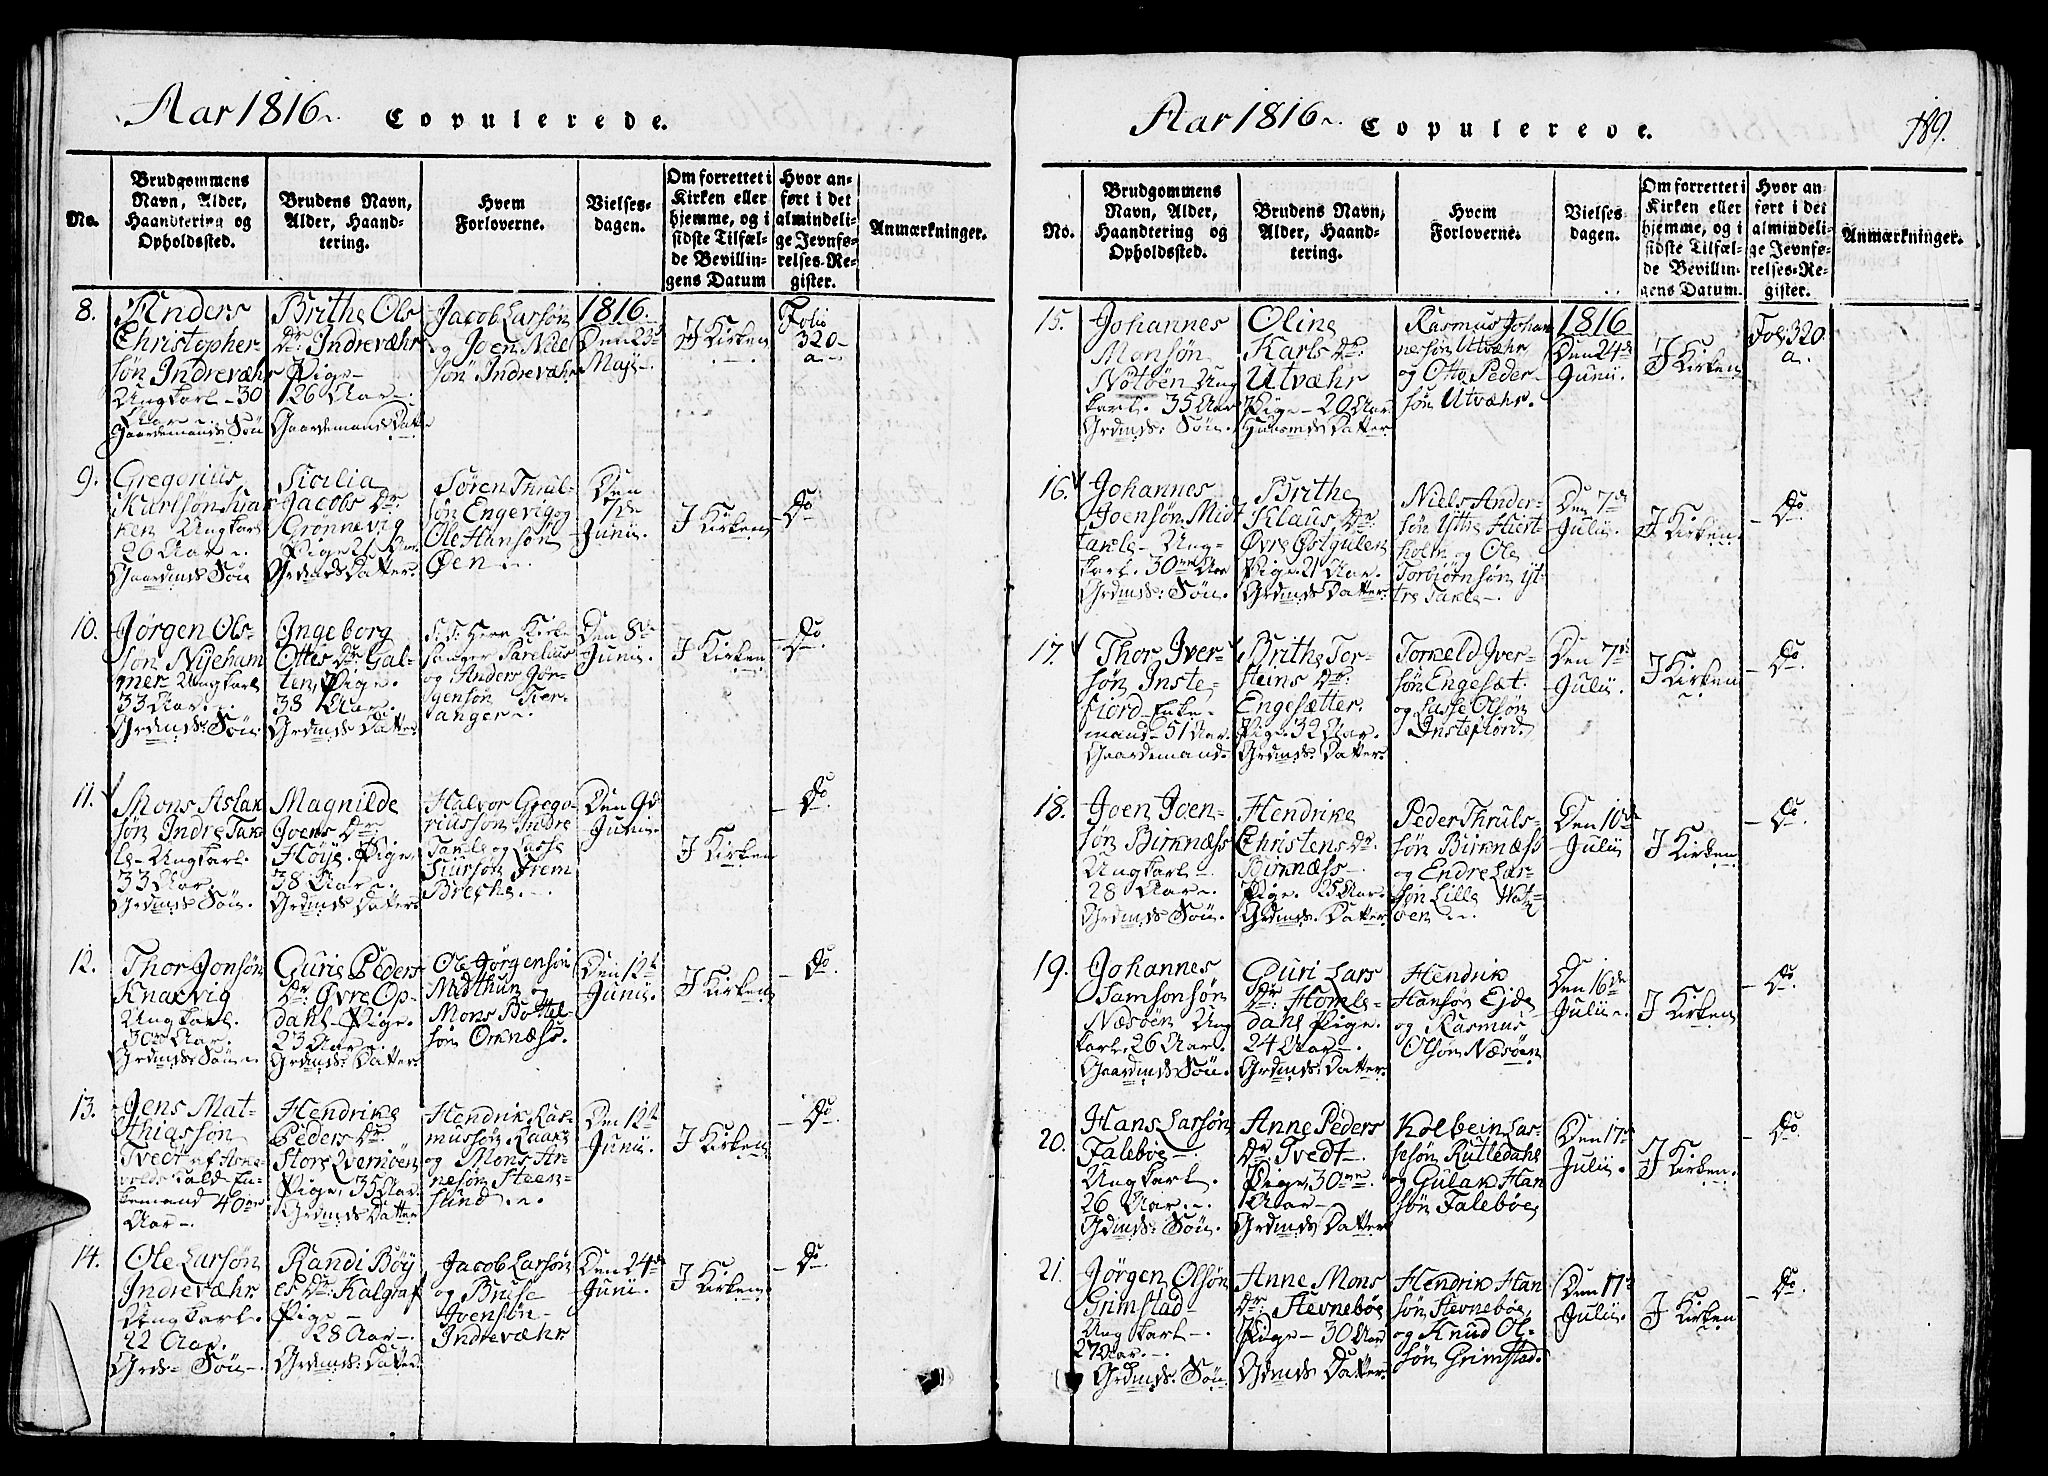 Aar 1816. Copulerede.
No.
Brudgommens
Navn, Alder,
Haandtering og
Opholdssted.
Brudens Navn,
Alder, Haand-
tering.
Hvem
Forloverne.
Vielses-
dagen.
Om forrettet i
Kirken eller
hjemme, og i
sidste Tilfæl-
de Bevillin-
gens Datum
Hvor an-
ført i det
almindeli-
ge Jevnfø-
relses-Re-
gister.
Anmærkninger.
8.
Anders
Christopher
søn Indrevæhr
Ungkarl - 30
Aar -
Gaardemands Søn
Brithe Ols
Dr. Indrevæhr
Pige -
26 Aar -.
Gaardemands Datter
Jacob Larsøn
og Joen Niel
søn Indrevæhr
1816.
Den 23d
Maji -.
I Kirken
Folio
320-
a -
9.
Gregorius
Karlsøn
ken Ungkarl
26 Aar -.
Gaardmds Søn
Sicilia
Jacobs Dr.
Grønnevig
Pige
Grdmds Datter.
Søren Thrul-
søn Engevig og
Ole Hansøn
Øen -.
Den
7de
Junii.
I Kirken
- Do
10.
Jørgen Ols-
søn Nyeham
mer Ungkarl
33 Aar -.
Grdmds: Søn
Ingeborg
Ottes Dr. Gal-
ten, Pige.
38 Aar.
Grdmds Datter
S. T. Herr Kirke
sanger
og Anders Jør-
gensøn
anger -.
Den 8de
Junii.
I Kirken
- Do.
11.
Mons Aslak
søn Indre Tak-
le - Ungkarl.
33 Aar
Grdmds Søn.
Magnilde
Joens Dr.
Høÿe. Pige,
38 Aar -.
Grdmds Datter.
Halvor Grego-
riussøn Indre
Takle og Lasse
Siursøn Frem
Breche. -.
Den 9d
Junii -.
I Kirken
- Do.
12.
Thor Jonsøn
Knarvig
Ungkarl.
30 Aar.
Grdmds: Søn -.
Gurie Peders
Dr: Øvre Op-
dahl - Pige.
23 Aar -.
Grdmds: Datter.
Ole Jørgensøn
Midthun og
Mons Bottel-
søn Orknæss.
Den 12te
Junii.
I Kirken
- Do.
13.
Jens Mat-
thiassøn
Tvedt af Aske-
volds Kald En-
kemand 40
Aar -.
Hendrike
Peders Dr.
Store Qvernøen
Pige, 35 Aar.
Grdmds Datter
Hendrik Ras-
mussøn
og Mons Ar-
nesøn Steen-
sund -.
Den 12te
Junii.
I Kirken
- Do.
14.
Ole Larsøn
Indrevæhr
Ungkarl.
22 Aar.
Grds - Søn -.
Randi Bøÿ
es Dr. Kalgraf
Pige -
28 Aar -.
Grdmds: Datter
Jacob Larsøn
og Bruse
Joensøn -
Indrevæhr
Den 24de
Junii.
I Kirken
- Do.
Aar 1816. Copulerede.
189.
No.
Brudgommens
Navn, Alder,
Haandtering og
Opholdssted.
Brudens Navn,
Alder, Haand-
tering.
Hvem
Forloverne.
Vielses-
dagen.
Om forrettet i
Kirken eller
hjemme, og i
sidste Tilfæl-
de Bevillin-
gens Datum.
Hvor an-
ført i det
almindeli-
ge Jevnfø-
relses-Re-
gister.
Anmærkninger.
15.
Johannes
Monsøn
Notøen Ung
karl. 35 Aar
Grdmds: Søn.
Oline
Karls Dr.
Utvæhr
Pige - 20 Aar
Huusmds Datter
Rasmus Johan
nesøn Utvæhr
og Otto Peder-
søn Utvæhr.
1816
Den 24de
Junii.
I Kirken
Fol: 320.
a.
16.
Johannes
Joensøn Midt
takle - Ung-
karl. 30 Aar
Grdmds: Søn.
Brithe
Klaus Dr.
Øvre Østgulen
Pige. 21 Aar.
Grdmds Datter.
Niels Ander-
søn Ytre Hiert-
holm og Ole
Torbiørnsøn yt-
tre Takle -.
Den 7de
Julii.
I Kirken.
- Do.
17.
Thor Iver-
søn Inste-
fiord Enke-
mand - 51 Aar.
Gaardemand -
Brithe Tor-
steins Dr.
Engesætter.
Pige. 32 Aar.
Grdmds: Datter.
Torkeld Iver-
søn Engesæt
og Lasse Olsøn
Instefiord.
Den 7de
Julii.
I Kirken
- Do.
18.
Joen Joen-
søn Birknæss
Ungkarl -.
28 Aar -.
Grdmds Søn.
Hendrike
Christens Dr.
Birknæss -
Pige. 25 Aar.
Grdmds. Datter
Peder Thruls-
søn Birknæss
og Endre Lar-
søn Lille Hat-
øen -.
Den 10de
Julii
I Kirken
- Do.
19.
Johannes
Samsonsøn
Næsøen Ung
karl. 26 Aar.
Gaardmds Søn.
Guri Lars
Dr. Homle-
dahl Pige.
24 Aar -.
Grdmds: Datter.
Hendrik
Hansøn Ejde
og Rasmus
Olsøn Næsøen
Den 16de
Julii -.
I Kirken
- Do.
20.
Hans Larsøn
Falebøe -.
Ungkarl.
26 Aar -.
Gdmds: Søn.
Anne Peders
Dr Tvedt -.
Pige, 30
Aar -
Grdmds Datter
Kolbein Las-
sesøn Rutledahl
og Gulak Han
søn Falebøe,
Den 17de
Julii.
I Kirken.
- Do.
21.
Jørgen Olsøn
Grimstad -
Ungkarl -.
27 Aar. -.
Grdmds. Søn.
Anne Mons
Dr. Stevnebøe
Pige - 30 Aar
Gdmds Datter.
Hendrik Han
søn Stevnebøe,
og Knud Ol-
søn Grimstad.
Den 17de
Julii.
I Kirken
- Do.